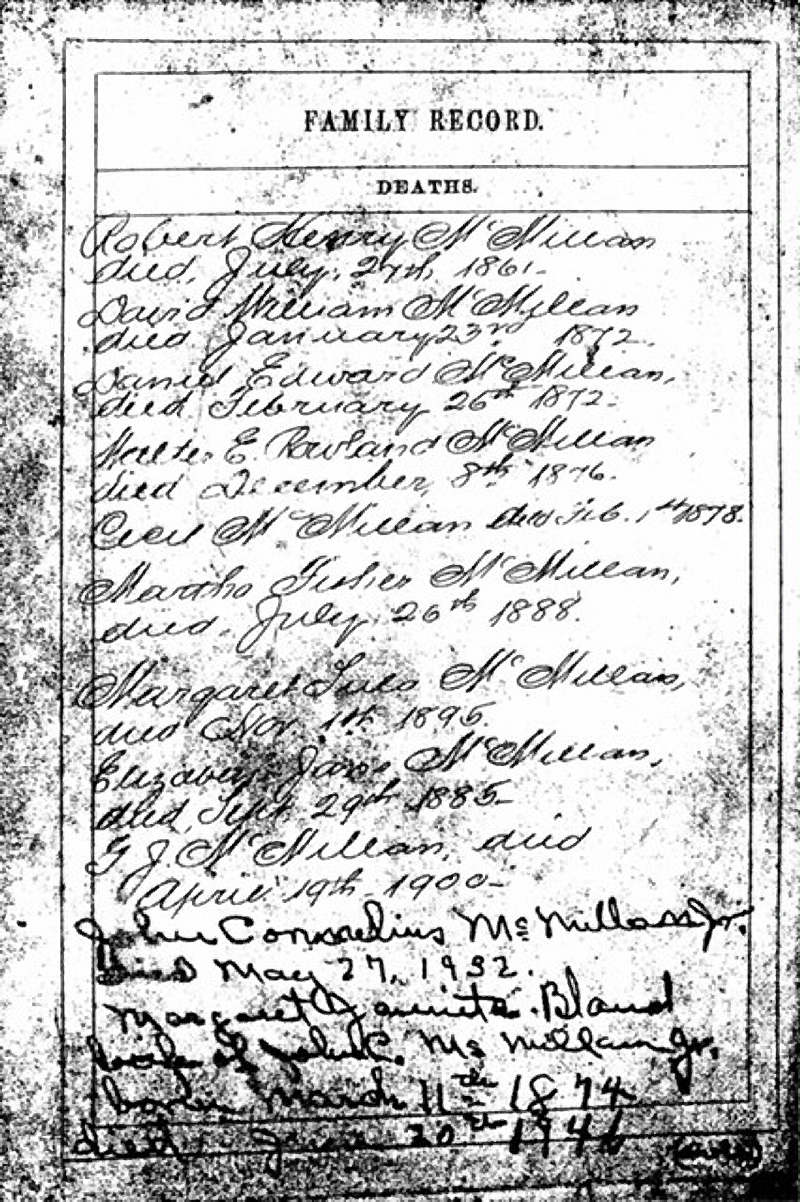 FAMILY RECORD.
DEATHS.
Robert Henry McMillan
died, July, 27th, 1861.
David William McMillan
died January 23rd 1872.
Daniel Edward McMillan,
died February 26th 1872.
Walter E. Rowland McMillan
died December, 8th 1876.
Cecil McMillan died Feb. 1st 1878.
Martha Fisher McMillan,
died, July, 26th 1888.
Margaret McMillan,
died Nov. 1st 1895.
Elizabeth Jane McMillan,
died, Sept. 29th 1885
G. J. McMillan, died
April 19th 1900
John Cornelius McMillan Jr.
Died May 27, 1932.
Margaret Bland
John C. McMillan Jr.
born March 11th 1874
died 20th 1946
(over)